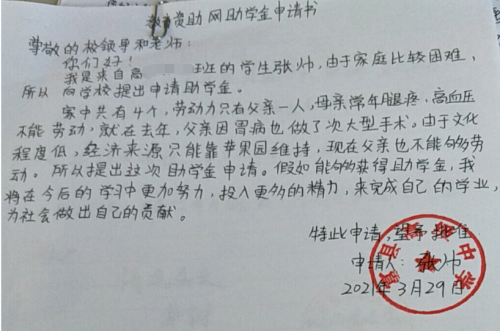 资助网助学金申请书
尊敬的校领导和老师:
你们好!
我是来自高 班的学生张帅,由于家庭比较困难,
所以向学校提出申请助学金。
家中共有4个,劳动力只有父亲一人,母亲常年腿疼、高血压
不能劳动,就在去年,父亲因胃病也做了次大型手术。由于文化
程度低,经济来源只能靠苹果园维持,现在父亲也不能够劳
动。所以提出这次助学金申请。假如能够获得助学金,我
将在今后的学习中更加努力,投入更多的精力,来完成自己的学业,
为社会做出自己的贡献。
特此申请,望予批准
申请人:张帅
2021年3月29日
中学